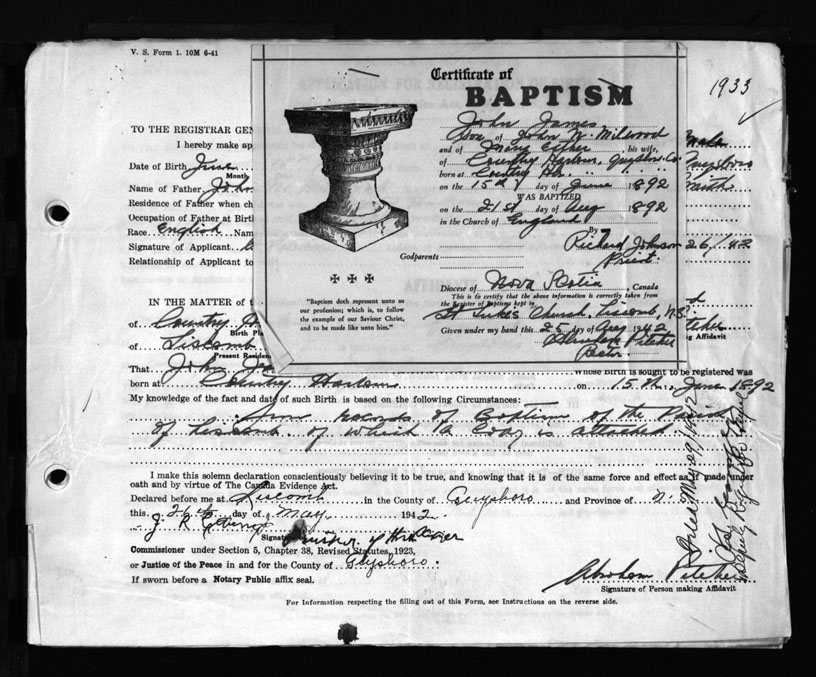 V. S. Form 1. 10M 6-41
1933
Certificate of
BAPTISM
John James
Son of John W. Milwood
and of Mary Esther, his wife,
of Country Harbour, Guysboro Co.
born at Country Hbr.
on the 15th day of June 1892
WAS BAPTIZED
on the 21st day of Aug 1892
in the Church of England
By
Richard Johnson
Priest
Godparents
Diocese of Nova Scotia, Canada
This is to certify that the above information is correctly taken from
the Register of Baptisms kept in
St Lukes Church, Liscomb, N.S.
Given under my hand this 25 day of May 1942
Rector.
"Baptism doth represent unto us
our profession; which is, to follow
the example of our Saviour Christ,
and to be made like unto him."
TO THE REGISTRAR GEN
I hereby make ap
Date of Birth June
Month
Name of Father
Residence of Father when ch
Occupation of Father at Birt
Race English Nam
Signature of Applicant
Relationship of Applicant to
Male
26/42
IN THE MATTER OF t
of Country
Birth Pla
of Liscomb
Present Residen
Affidavit
That John Ja whose birth is sought to be registered was
born at Country Harbour on 15th June 1892
My knowledge of the fact and date of such Birth is based on the following Circumstances:
from records of Baptism of the Parish
of Liscomb. of which a Copy is attached
I make this solemn declaration conscientiously believing it to be true, and knowing that it is of the same force and effect as if made under
oath and by virtue of The Canada Evidence Act.
Declared before me at Liscomb in the County of Guysboro and Province of N.
this 26th day of May 1942.
J. R.
Signat
Commissioner under Section 5, Chapter 38, Revised Statutes, 1923,
or Justice of the Peace in and for the County of Guysboro.
If sworn before a Notary Public affix seal.
Abraham
Signature of Person making Affidavit
For Information respecting the filling out of this Form, see Instructions on the reverse side.
Filed May 29/1942
Deputy Registrar